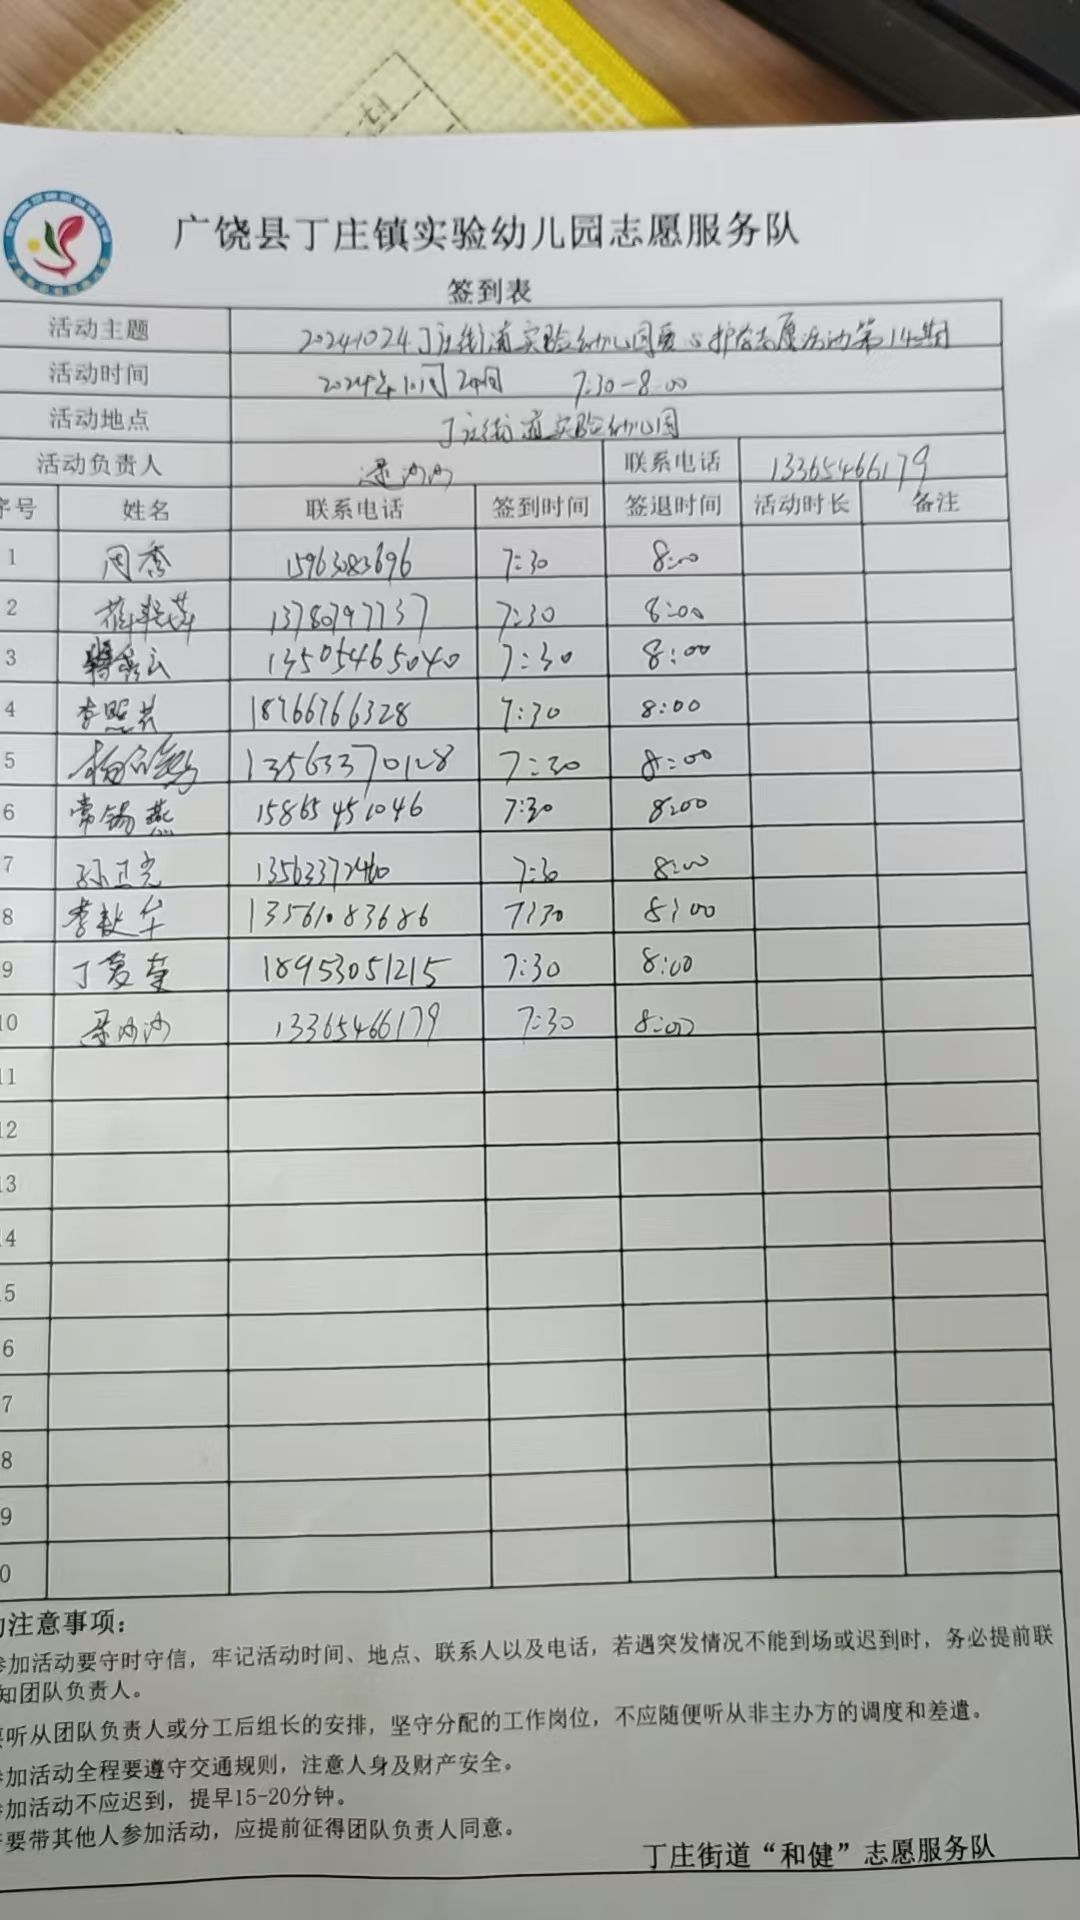 广饶县丁庄镇实验幼儿园志愿服务队
签到表
活动主题 20241024丁庄街道实验幼儿园爱心护学志愿活动第14期
活动时间 2024年10月24日 7:30-8:00
活动地点 丁庄街道实验幼儿园
活动负责人 梁沙沙 联系电话 13365466179
序号 姓名 联系电话 签到时间 签退时间 活动时长 备注
1 周香 15963083696 7:30 8:00
2 13780797737 7:30 8:00
3 13505465040 7:30 8:00
4 李照芸 18766766328 7:30 8:00
5 13563370128 7:30 8:00
6 常锡燕 15865451046 7:30 8:00
7 孙卫光 7:30 8:00
8 李秋华 13561083686 7:30 8:00
9 丁爱莲 18953051215 7:30 8:00
10 梁沙沙 13365466179 7:30 8:00
11
12
13
14
15
6
7
8
9
0
注意事项：
参加活动要守时守信，牢记活动时间、地点、联系人以及电话，若遇突发情况不能到场或迟到时，务必提前联
知团队负责人。
要听从团队负责人或分工后组长的安排，坚守分配的工作岗位，不应随便听从非主办方的调度和差遣。
参加活动全程要遵守交通规则，注意人身及财产安全。
参加活动不应迟到，提早15-20分钟。
要带其他人参加活动，应提前征得团队负责人同意。
丁庄街道“和健”志愿服务队